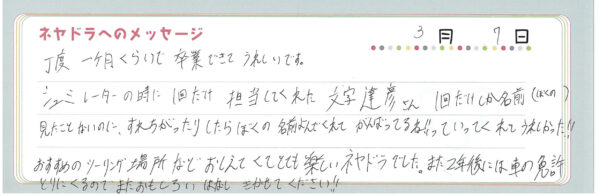 ネヤドラへのメッセージ
3月7日
丁度一ヶ月くらいで卒業できてうれしいです。
シュミレーターの時に1回だけ担当してくれた文字達彦さん 1回だけしか名前(ぼくの)
見たことないのに、すれちがったりしたらぼくの名前よんでくれてがんばってるね!!っていってくれてうれしかった!!
おすすめのツーリング場所などおしえてくてとても楽しいネヤドラでした。また2年後には車の免許
とりにくるのでまたおもしろいはなしきかせてください!!